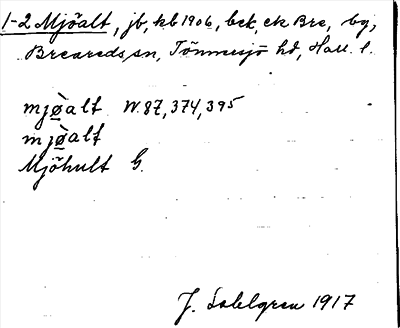 1-2 Mjöalt, jb, kb 1906, bek, ek Bre, by,
Breareds sn, Tönnersjö hd, Hall. l.
mjø̀alt W. 87, 374, 395
mjø̀alt
Mjöhult G.
J. Sahlgren 1917